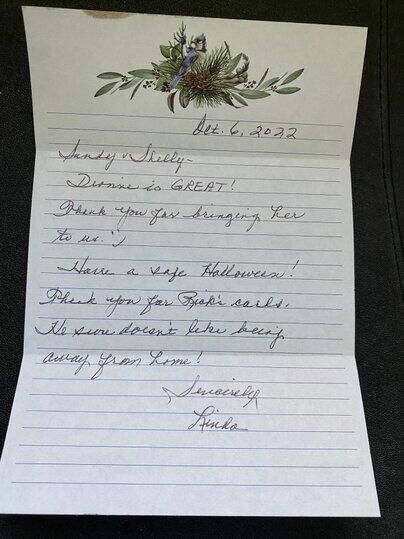 Oct. 6, 2022
Sandy & Shelly-
Dionne is GREAT!
Thank you for bringing her
to us. :)
Have a safe Halloween!
Thank you for Rick's cards.
He sure doesn't like being
away from home!
Sincerely,
Linda